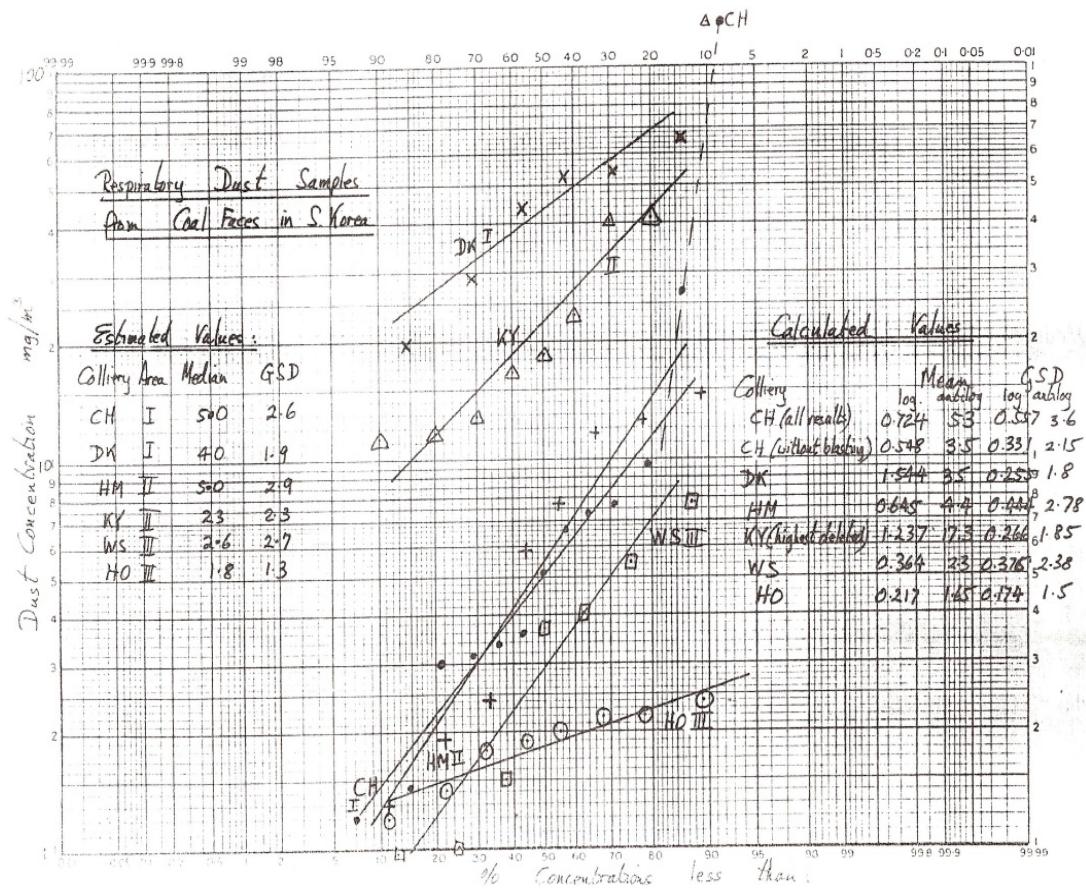 Δ •CH
99.99 99.9 99.8 99 98 95 90 80 70 60 50 40 30 20 10 5 2 1 0.5 0.2 0.1 0.05 0.01
100
Respiratory Dust Samples
from Coal Faces in S. Korea
DK I
II
KY
Dust Concentration mg/m³
Estimated Values:
Colliery Area Median GSD
CH I 5.0 2.6
DK I 40 1.9
HM II 5.0 2.9
KY II 23 2.3
WS III 2.6 2.7
HO III 1.8 1.3
Calculated Values
Colliery Mean GSD
log antilog log antilog
CH (all results) 0.724 5.3 0.557 3.6
CH (without blasting) 0.548 3.5 0.331 2.15
DK 1.544 35 0.255 1.8
HM 0.645 4.4 0.444 2.78
KY (highest deleted) 1.237 17.3 0.266 1.85
WS 0.364 23 0.376 2.38
HO 0.217 1.65 0.174 1.5
WS III
HO III
HM II
CH
I
10 20 30 40 50 60 70 80 90 95 98 99 99.8 99.9 99.99
% Concentrations less than: